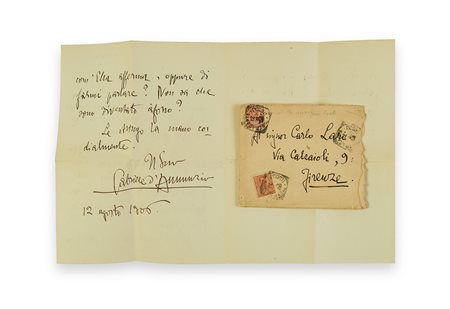 com'Ella afferma, oppure di
farmi parlare? Non sa che
sono diventato afono?
Le stringo la mano cor-
dialmente.
Il Suo
Gabriele d'Annunzio
12 agosto 1906
Signor Carlo
Via Calzaioli, 9.
Firenze.